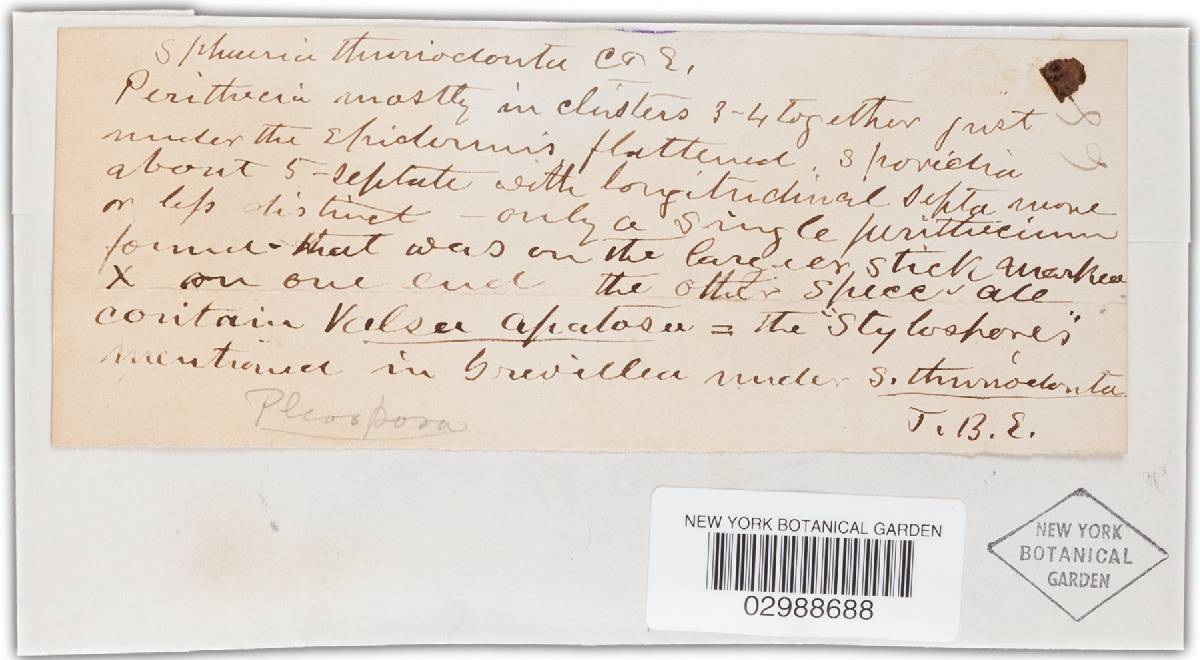 Sphaeria thuriodonta C & E.
Perithecia mostly in clusters 3-4 together just
under the Epidermis, flattened. Sporidia
about 5-septate with longitudinal septa more
or less distinct - only a single perithecium
found - that was on the larger stick marked
X on one end the other specc. all
contain Valsa apatosa = the "Stylospores"
mentioned in Grevillea under S. thuriodonta
J. B. E.
Pleospora
NEW YORK BOTANICAL GARDEN
02988688
NEW YORK
BOTANICAL
GARDEN